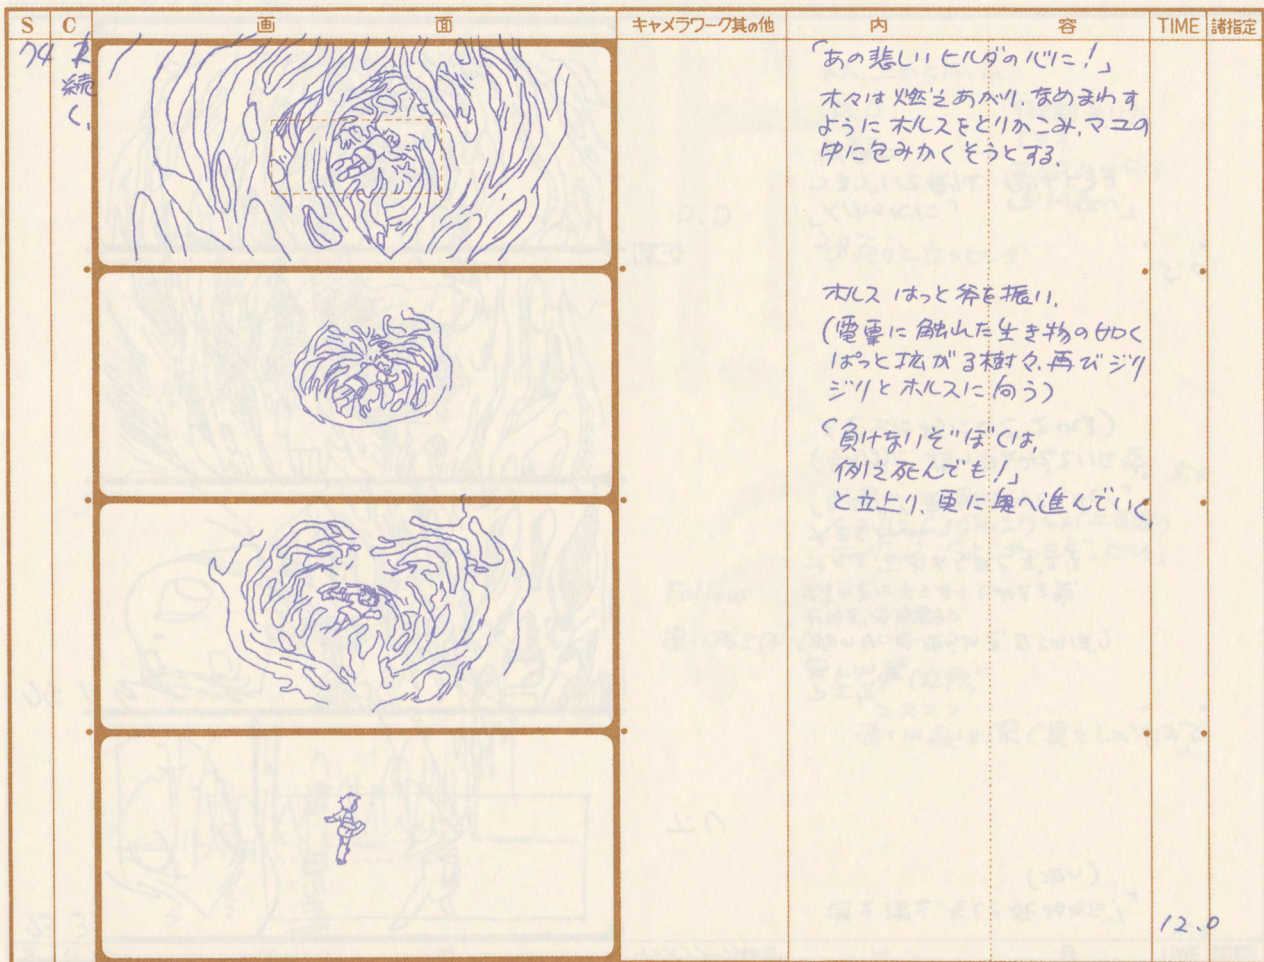 S C 画面 キャメラワーク其の他 内容 TIME 諸指定
74
続
く、
「あの悲しいヒルダの心に!」
木々は燃えあがり、なめまわす
ようにホルスをとりかこみ、マユの
中に包みかくそうとする、
ホルス はっと斧を振い、
(電車に触れた生き物の如く
ぱっと拡がる樹々、再びジリ
ジリとホルスに向う)
「負けないぞぼくは、
例え死んでも!」
と立上り、更に奥へ進んでいく、
12.0